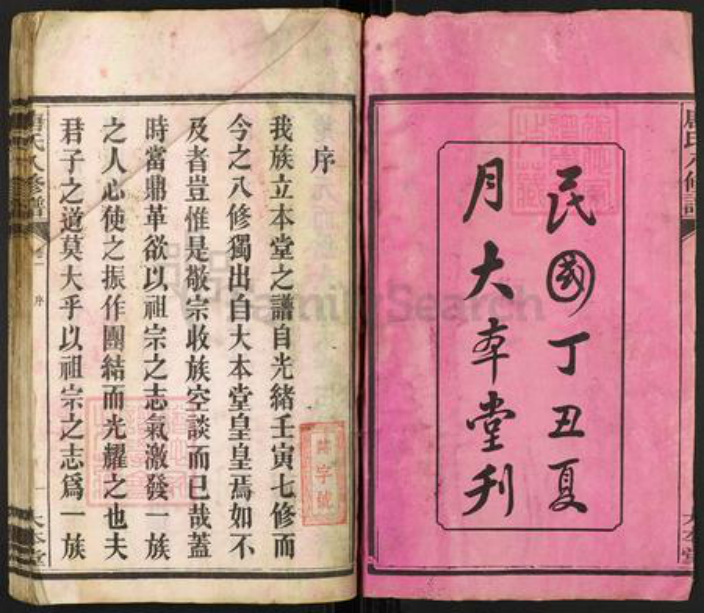 民國丁丑夏
月大本堂刋
唐氏八修譜
大本堂
序
我族立本堂之譜自光緒壬寅七修而
今之八修獨出自大本堂皇皇焉如不
及者豈惟是敬宗收族空談而已哉蓋
時當鼎革欲以祖宗之志氣激發一族
之人心使之振作團結而光耀之也夫
君子之道莫大乎以祖宗之志爲一族
唐氏八修譜
序
大本堂
字號
FamilySearch